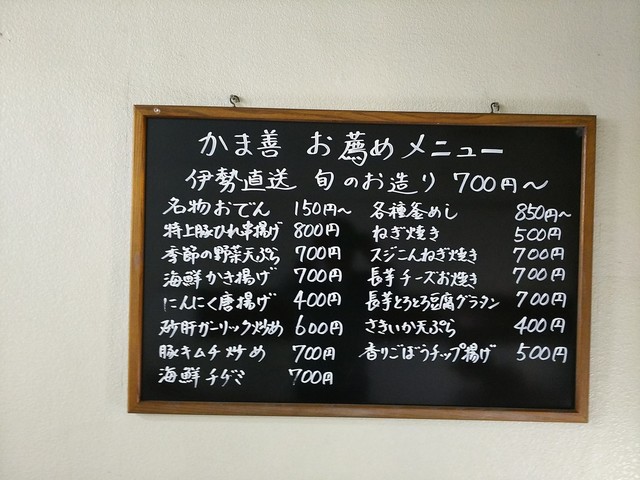 かま善 お薦めメニュー
伊勢直送 旬のお造り 700円〜
名物おでん 150円〜
特上豚ひれ串揚げ 800円
季節の野菜天ぷら 700円
海鮮かき揚げ 700円
にんにく唐揚げ 400円
砂肝ガーリック炒め 600円
豚キムチ炒め 700円
海鮮チヂミ 700円
各種釜めし 850円〜
ねぎ焼き 500円
スジこんねぎ焼き 700円
長芋チーズお焼き 700円
長芋とろとろ豆腐グラタン 700円
さきいか天ぷら 400円
香りごぼうチップ揚げ 500円